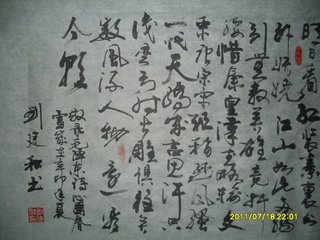 日看红装素裹
外妖娆江山如此多娇
引无数英雄竞折
腰惜秦皇汉武略输文
采唐宗宋祖稍逊风骚
一代天骄成吉思汗只
识弯弓射大雕俱往矣
数风流人物还看
今朝
毛泽东诗沁园春
雪 辛卯年夏
刘建和书
2011/07/18 22:01